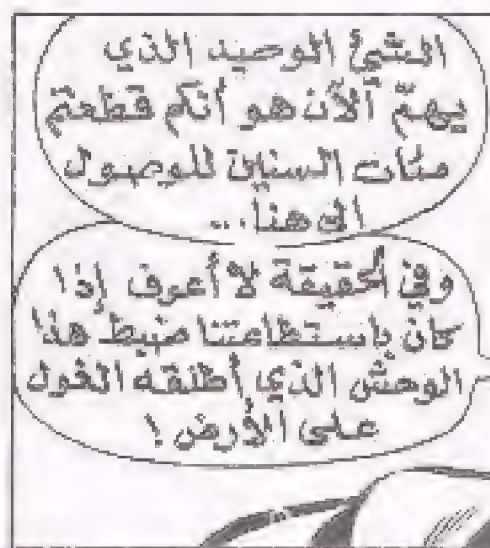 الشئ الوحيد الذي
يهمّ ألآن هو أنكم قطعتم
مئات السنين للوصول
الى هنا...
وفي الحقيقة لا أعرف إذا
كان باستطاعتنا ضبط هذا
الوحش الذي أطلقه الغول
على الأرض !